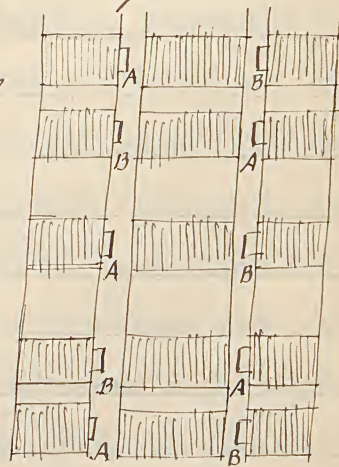 A B
B A
A B
B A
A B